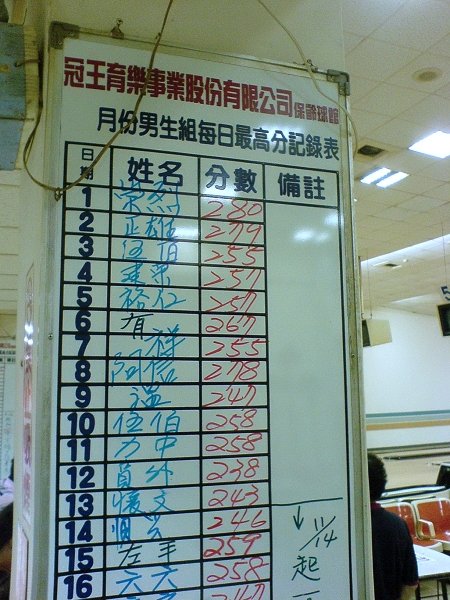 冠王育樂事業股份有限公司保齡球館
月份男生組每日最高分記錄表
日期 姓名 分數 備註
1 280
2 正雄 279
3 伍佰 255
4 建業 257
5 裕仁 257
6 有 267
7 祥 255
8 阿信 278
9 溫 247
10 伍伯 258
11 力中 258
12 員外 238
13 懷文 243
14 246 ↓ 11/14
15 左手 259 起
16 六六 258
247